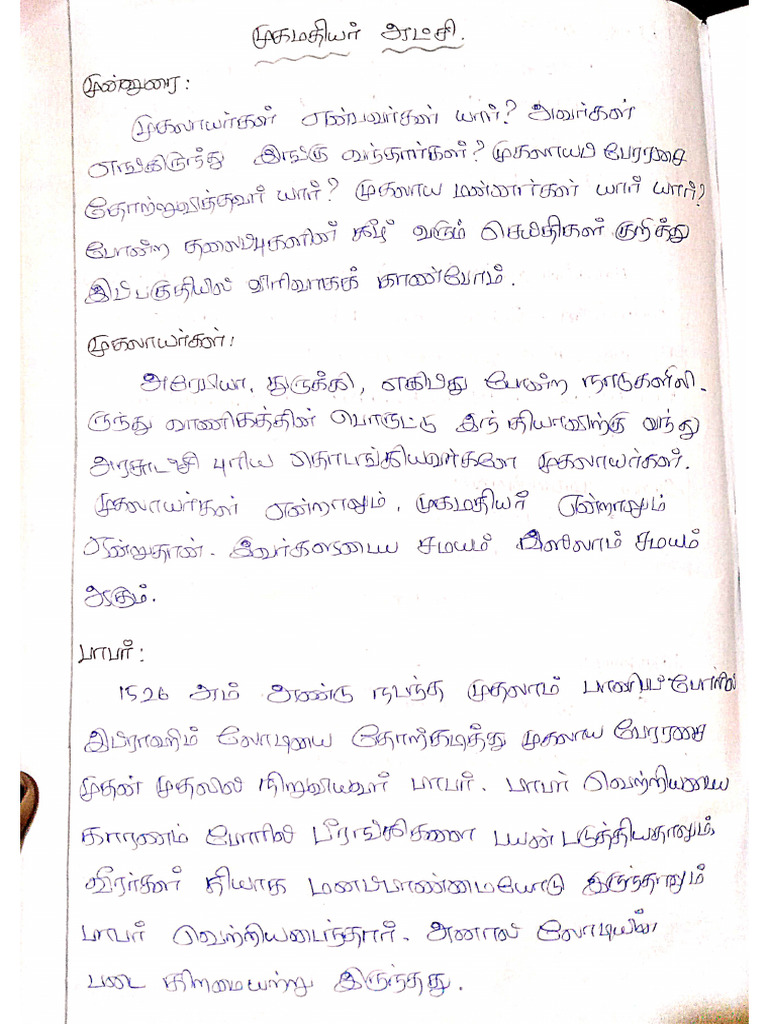 முகமதியர் ஆட்சி.
முன்னுரை:
முகலாயர்கள் என்பவர்கள் யார்? அவர்கள்
எங்கிருந்து இங்கு வந்தார்கள்? முகலாயப் பேரரசை
தோற்றுவித்தவர் யார்? முகலாய மன்னார்கள் யார் யார்?
போன்ற தலைப்புகளின் கீழ் வரும் செய்திகள் குறித்து
இப்பகுதியில் விரிவாகக் காண்போம்.
முகலாயர்கள்:
அரேபியா, துருக்கி, எகிப்து போன்ற நாடுகளிலி
ருந்து வாணிகத்தின் பொருட்டு இந்தியாவிற்கு வந்து
அரசாட்சி புரிய தொடங்கியவர்களே முகலாயர்கள்.
முகலாயர்கள் என்றாலும், முகமதியர் என்றாலும்
ஒன்றுதான். இவர்களுடைய சமயம் இஸ்லாம் சமயம்
ஆகும்.
பாபர்:
1526 ஆம் ஆண்டு நடந்த முதலாம் பானிபட் போரில்
இப்ராஹிம் லோடியை தோற்கடித்து முகலாய பேரரசை
முதன் முதலில் நிறுவியவர் பாபர். பாபர் வெற்றியடைய
காரணம் போரில் பீரங்கிகளை பயன் படுத்தியதாலும்,
வீரர்கள் தியாக மனப்பாண்மையோடு இருந்தாலும்
பாபர் வெற்றியடைந்தார். ஆனால் லோடியின்
படை திறமையற்று இருந்தது.